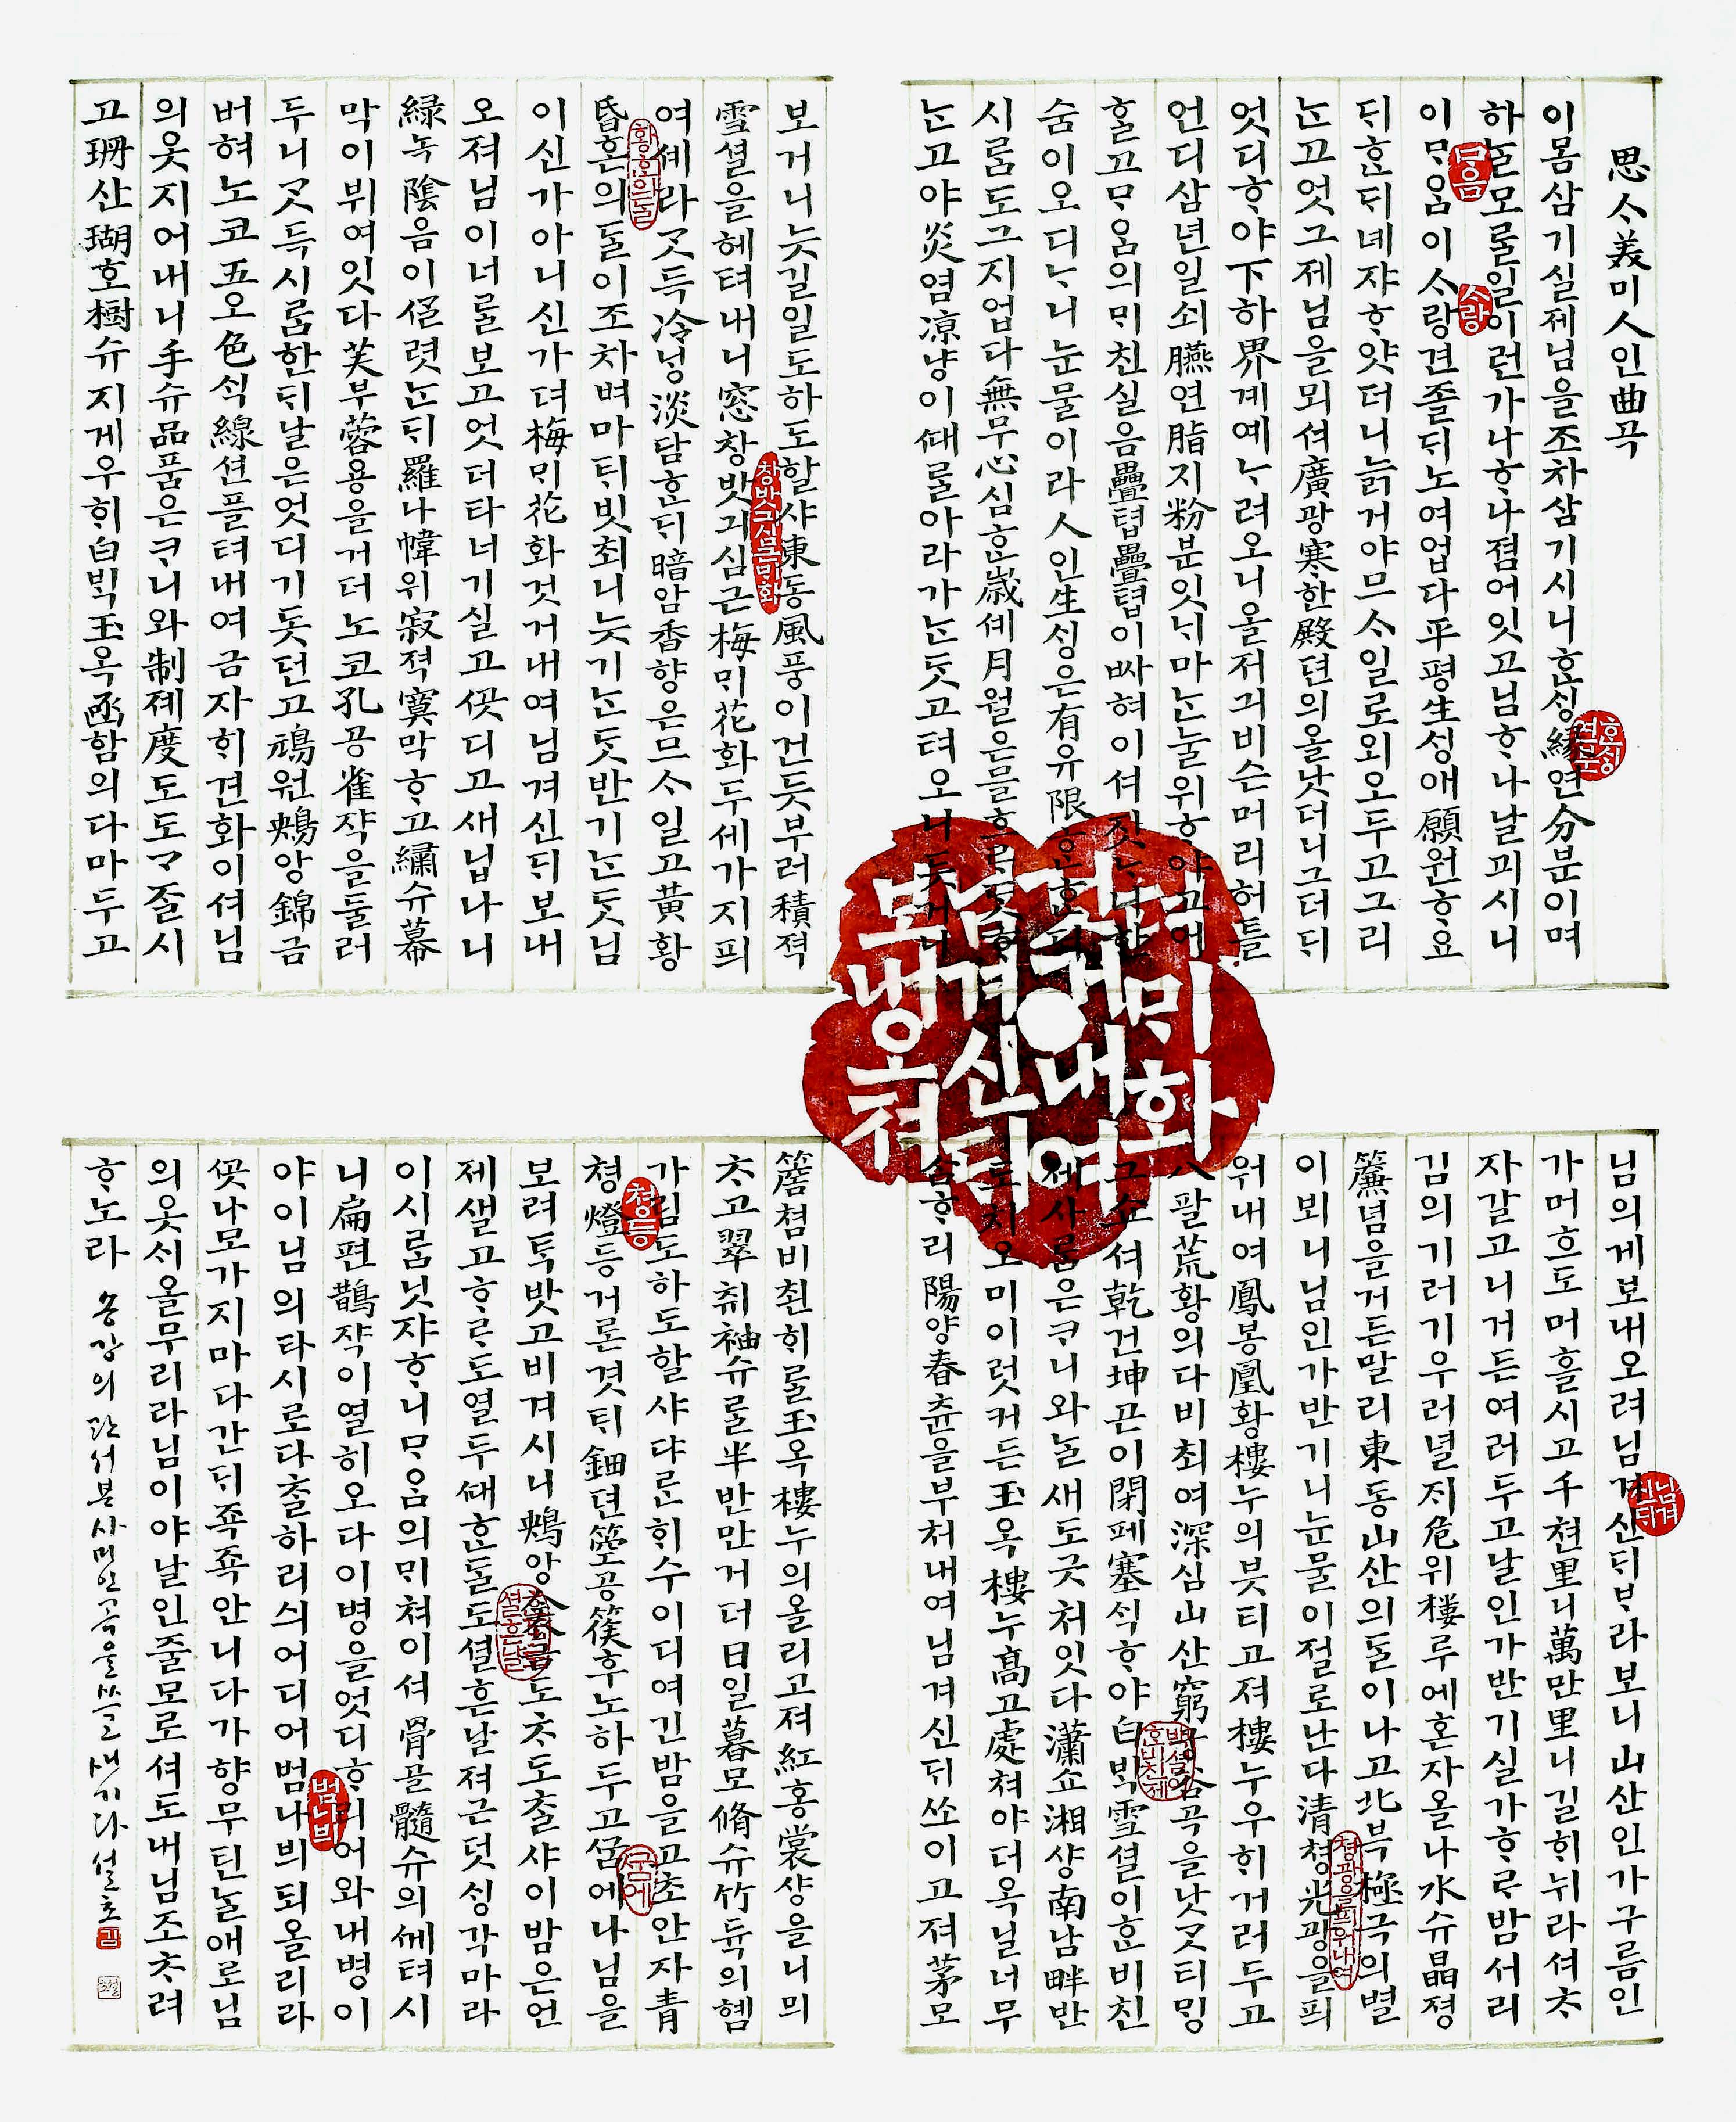 思ᄉᆞ美미人인曲곡
이몸삼기실제님을조차삼기시니ᄒᆞᆫᄉᆡᆼ緣연分분이며
하ᄂᆞᆯ모ᄅᆞᆯ일이런가나ᄒᆞ나졈어잇고님ᄒᆞ나날괴시니
이ᄆᆞᄋᆞᆷ이ᄉᆞ랑견졸ᄃᆡ노여업다平평生ᄉᆡᆼ애願원ᄒᆞ요
ᄃᆡᄒᆞᆫᄃᆡ녜쟈ᄒᆞ얏더니늙거야므ᄉᆞ일로외오두고그리
ᄂᆞᆫ고엇그제님을뫼셔廣광寒한殿뎐의올낫더니그더ᄃᆡ
엇디ᄒᆞ야下하界계예ᄂᆞ려오니올저긔비슨머리허틀
언디삼년일쇠臙연脂지粉분잇ᄂᆡ마ᄂᆞᆫ눌위ᄒᆞ야고이
ᄒᆞᆯ고ᄆᆞᄋᆞᆷ의ᄆᆡ친실음疊텹疊텹이싸혀이셔짓ᄂᆞ니한
숨이오디ᄂᆞ니눈물이라人인生ᄉᆡᆼ은有유限ᄒᆞᆫᄒᆞᆫᄃᆡ
시ᄅᆞᆷ도그지업다無무心심ᄒᆞᆫ歲셰月월은믈흐ᄅᆞᄃᆞᆺᄒᆞ
ᄂᆞᆫ고야炎염凉냥이ᄯᅢᄅᆞᆯ아라가ᄂᆞᆫᄃᆞᆺ고텨오니듯거니
보거니늣길일도하도할샤東동風풍이건듯부러積젹
雪셜을헤텨내니窓창밧긔심근梅ᄆᆡ花화두세가지픠
여셰라ᄀᆞᆺ득冷ᄂᆡᆼ淡담ᄒᆞᆫᄃᆡ暗암香향은므ᄉᆞ일고黃황
昏혼의ᄃᆞᆯ이조차벼마ᄐᆡ빗최니늣기ᄂᆞᆫᄃᆞᆺ반기ᄂᆞᆫᄃᆞᆺ님
이신가아니신가뎌梅ᄆᆡ花화것거내여님겨신ᄃᆡ보내
오져님이너ᄅᆞᆯ보고엇더타너기실고ᄭᅩᆺ디고새닙나니
綠녹陰음이ᄭᆞᆯ렷ᄂᆞᆫᄃᆡ羅나幃위寂젹寞막ᄒᆞ고繡슈幕
막이뷔여잇다芙부蓉용을거더노코孔공雀쟉을둘러
두니ᄀᆞᆺ득시ᄅᆞᆷ한ᄃᆡ날은엇디기돗던고鴛원鴦앙錦금
버혀노코五오色ᄉᆡᆨ線션플텨내여금자ᄒᆡ견화이셔님
의옷지어내니手슈品품은ᄏᆞ니와制졔度도도ᄀᆞᄌᆞᆯ시
고珊산瑚호樹슈지게우ᄒᆡ白ᄇᆡᆨ玉옥函함의다마두고
님의게보내오려님겨신ᄃᆡᄇᆞ라보니山산인가구름인
가머흐도머흘시고千쳔里리萬만里리길ᄒᆡ뉘라셔ᄎᆞ
자갈고니거든여러두고날인가반기실가ᄒᆞᄅᆞ밤서리
김의기러기우러녈제危위樓루에혼자올나水슈晶졍
簾념을거든말리東동山산의ᄃᆞᆯ이나고北븍極극의별
이뵈니님인가반기니눈물이절로난다淸쳥光광을픠
워내여鳳봉凰황樓누의븟티고져樓누우ᄒᆡ거러두고
八팔荒황의다비최여深심山산窮궁谷곡을낫ᄀᆞᆺ티ᄆᆡᆼ
그쇼셔乾건坤곤이閉폐塞ᄉᆡᆨᄒᆞ야白ᄇᆡᆨ雪셜이ᄒᆞᆫ비친
제사ᄅᆞᆷ은ᄏᆞ니와ᄂᆞᆯ새도긋쳐잇다瀟쇼湘샹南남畔반
도치오미이럿커든玉옥樓누高고處쳐야더옥닐너무
ᄉᆞᆷᄒᆞ리陽양春츈을부쳐내여님겨신ᄃᆡ쏘이고져茅모
簷쳠비쵠ᄒᆡᄅᆞᆯ玉옥樓누의올리고져紅홍裳샹을니믜
ᄎᆞ고翠취袖슈ᄅᆞᆯ半반만거더日일暮모脩슈竹듁의혬
가림도하도할샤댜ᄅᆞᆫᄒᆡ수이디여긴밤을고초안자靑
쳥燈등거론겻ᄐᆡ鈿뎐箜공篌후노하두고ᄭᅮᆷ에나님을
보려ᄐᆞᆨ밧고비겨시니鴦앙衾금도ᄎᆞ도ᄎᆞᆯ샤이밤은언
제샐고ᄒᆞᄅᆞ도열두ᄯᅢᄒᆞᆫᄃᆞᆯ도셜흔날져근덧ᄉᆡᆼ각마라
이시ᄅᆞᆷ닛쟈ᄒᆞ니ᄆᆞᄋᆞᆷ의ᄆᆡ쳐이셔骨골髓슈의ᄢᅦ텨시
니扁편鵲쟉이열히오다이병을엇디ᄒᆞ리어와내병이
야이님의타시로다ᄎᆞᆯ하리싀어디어범나븨되올리라
ᄭᅩᆺ나모가지마다간ᄃᆡ죡죡안니다가향무틴ᄂᆞᆯ애로님
의옷ᄉᆡ올무리라님이야날인줄모로셔도내님조ᄎᆞ려
ᄒᆞ노라 송강의관서본사미인곡을쓰고새기다설초
ᄆᆞ음
ᄉᆞ랑
ᄒᆞᆫᄉᆡᆼ연분
황혼의ᄃᆞᆯ
창밧긔심근ᄆᆡ화
뎌ᄆᆡ화
것거내여
님겨신ᄃᆡ
보내오져
님겨신ᄃᆡ
쳥광을픠워내여
ᄇᆡᆨ셜이ᄒᆞᆫ비친제
쳥등
ᄭᅮᆷ에
셜흔날
범나븨
김